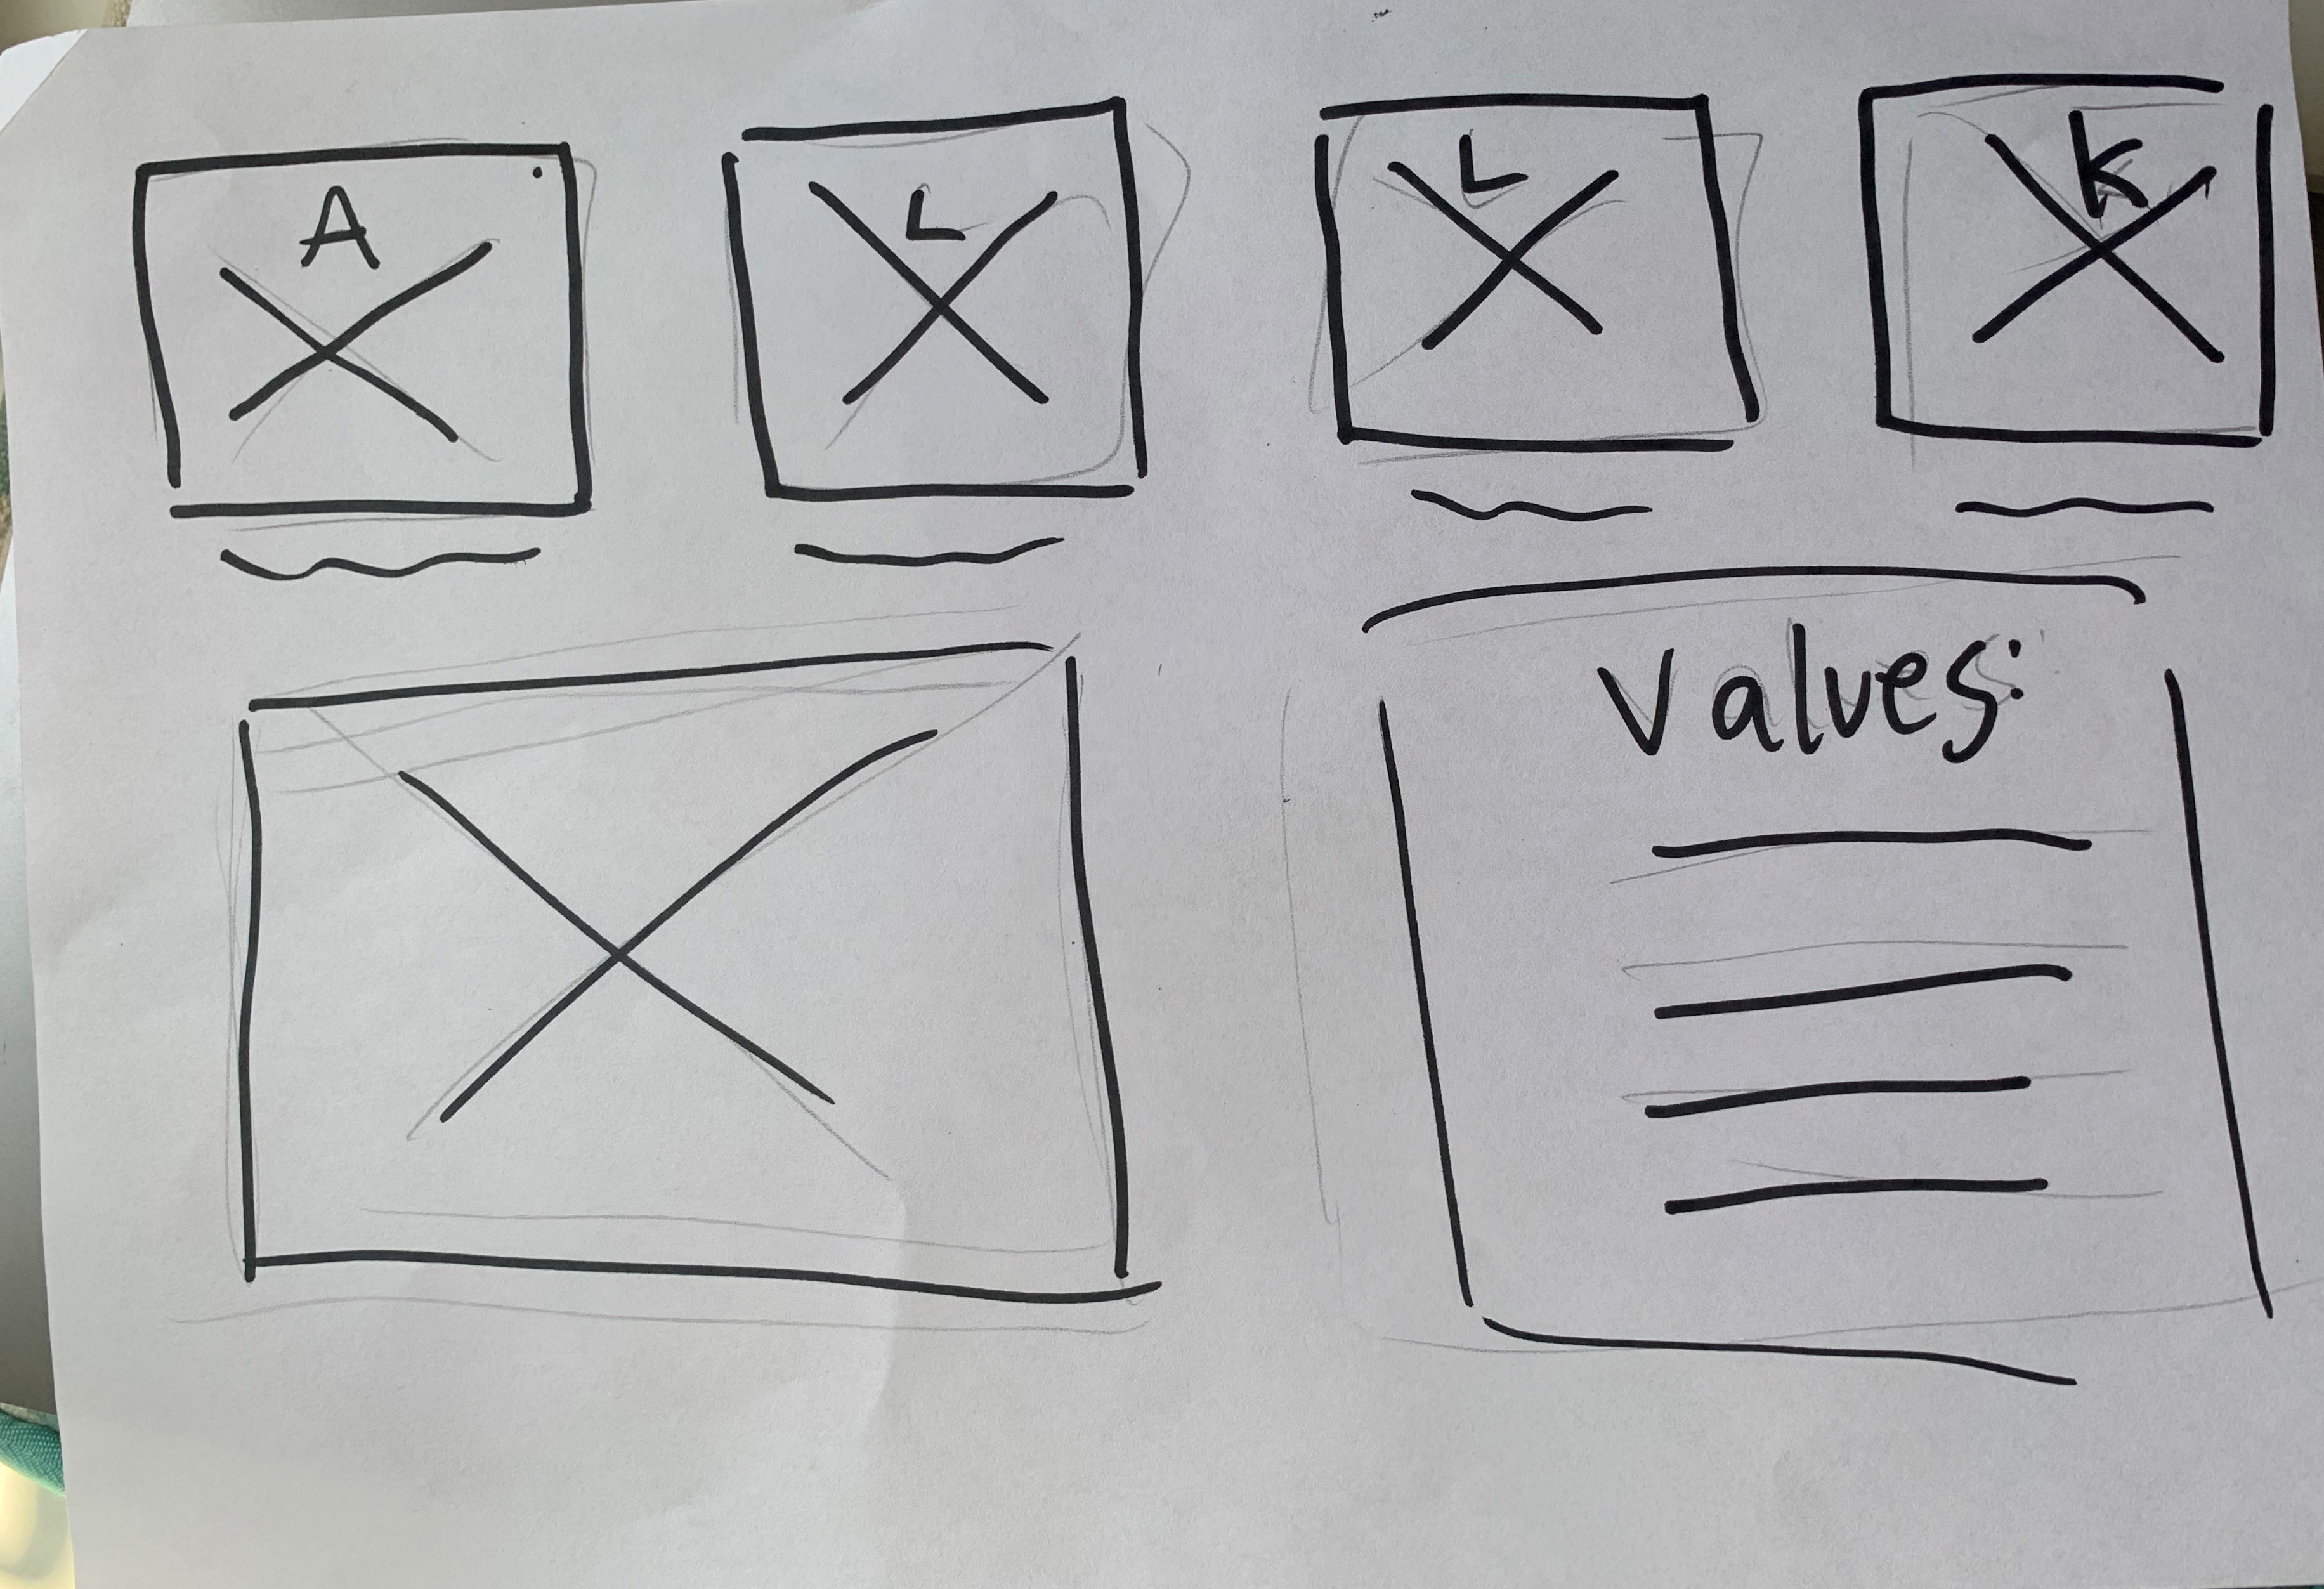 A L L K
Values: